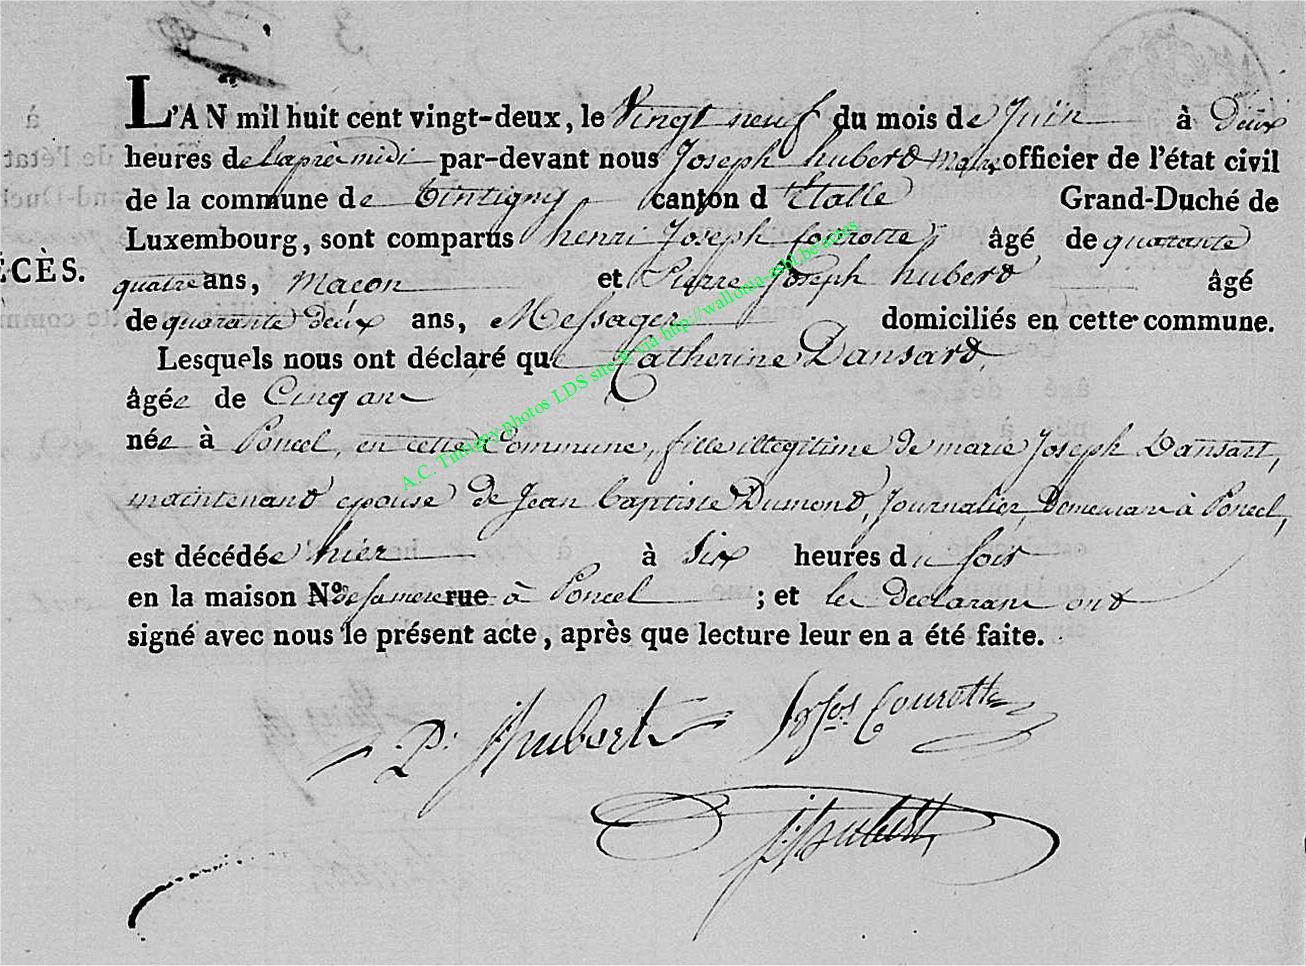 L'AN mil huit cent vingt-deux, le Vingt neuf du mois de Juin à Deux
heures de l'après midi par-devant nous Joseph hubert maire officier de l'état civil
de la commune de Tintigny canton d'Etalle Grand-Duché de
Luxembourg, sont comparus henri Joseph Courotte, âgé de quarante
ÉCÈS.
quatre ans, macon et Pierre Joseph hubert âgé
de quarante deux ans, Messager domiciliés en cette commune.
Lesquels nous ont déclaré que Catherine Dansard,
âgée de Cinq ans
née à Poncel, en cette Commune, fille illegitime de marie Joseph Dansart,
maintenant epouse de Jean baptiste Dumont, Journalier, Demeurant à Poncel,
est décédée hier à Six heures du soir
en la maison N° de sa mere rue à Poncel ; et les declarans ont
signé avec nous le présent acte, après que lecture leur en a été faite.
P. J hubert Courotte
J hubert
A.C. Tintigny photos LDS site © via http://wallonia-asbl.be/actes